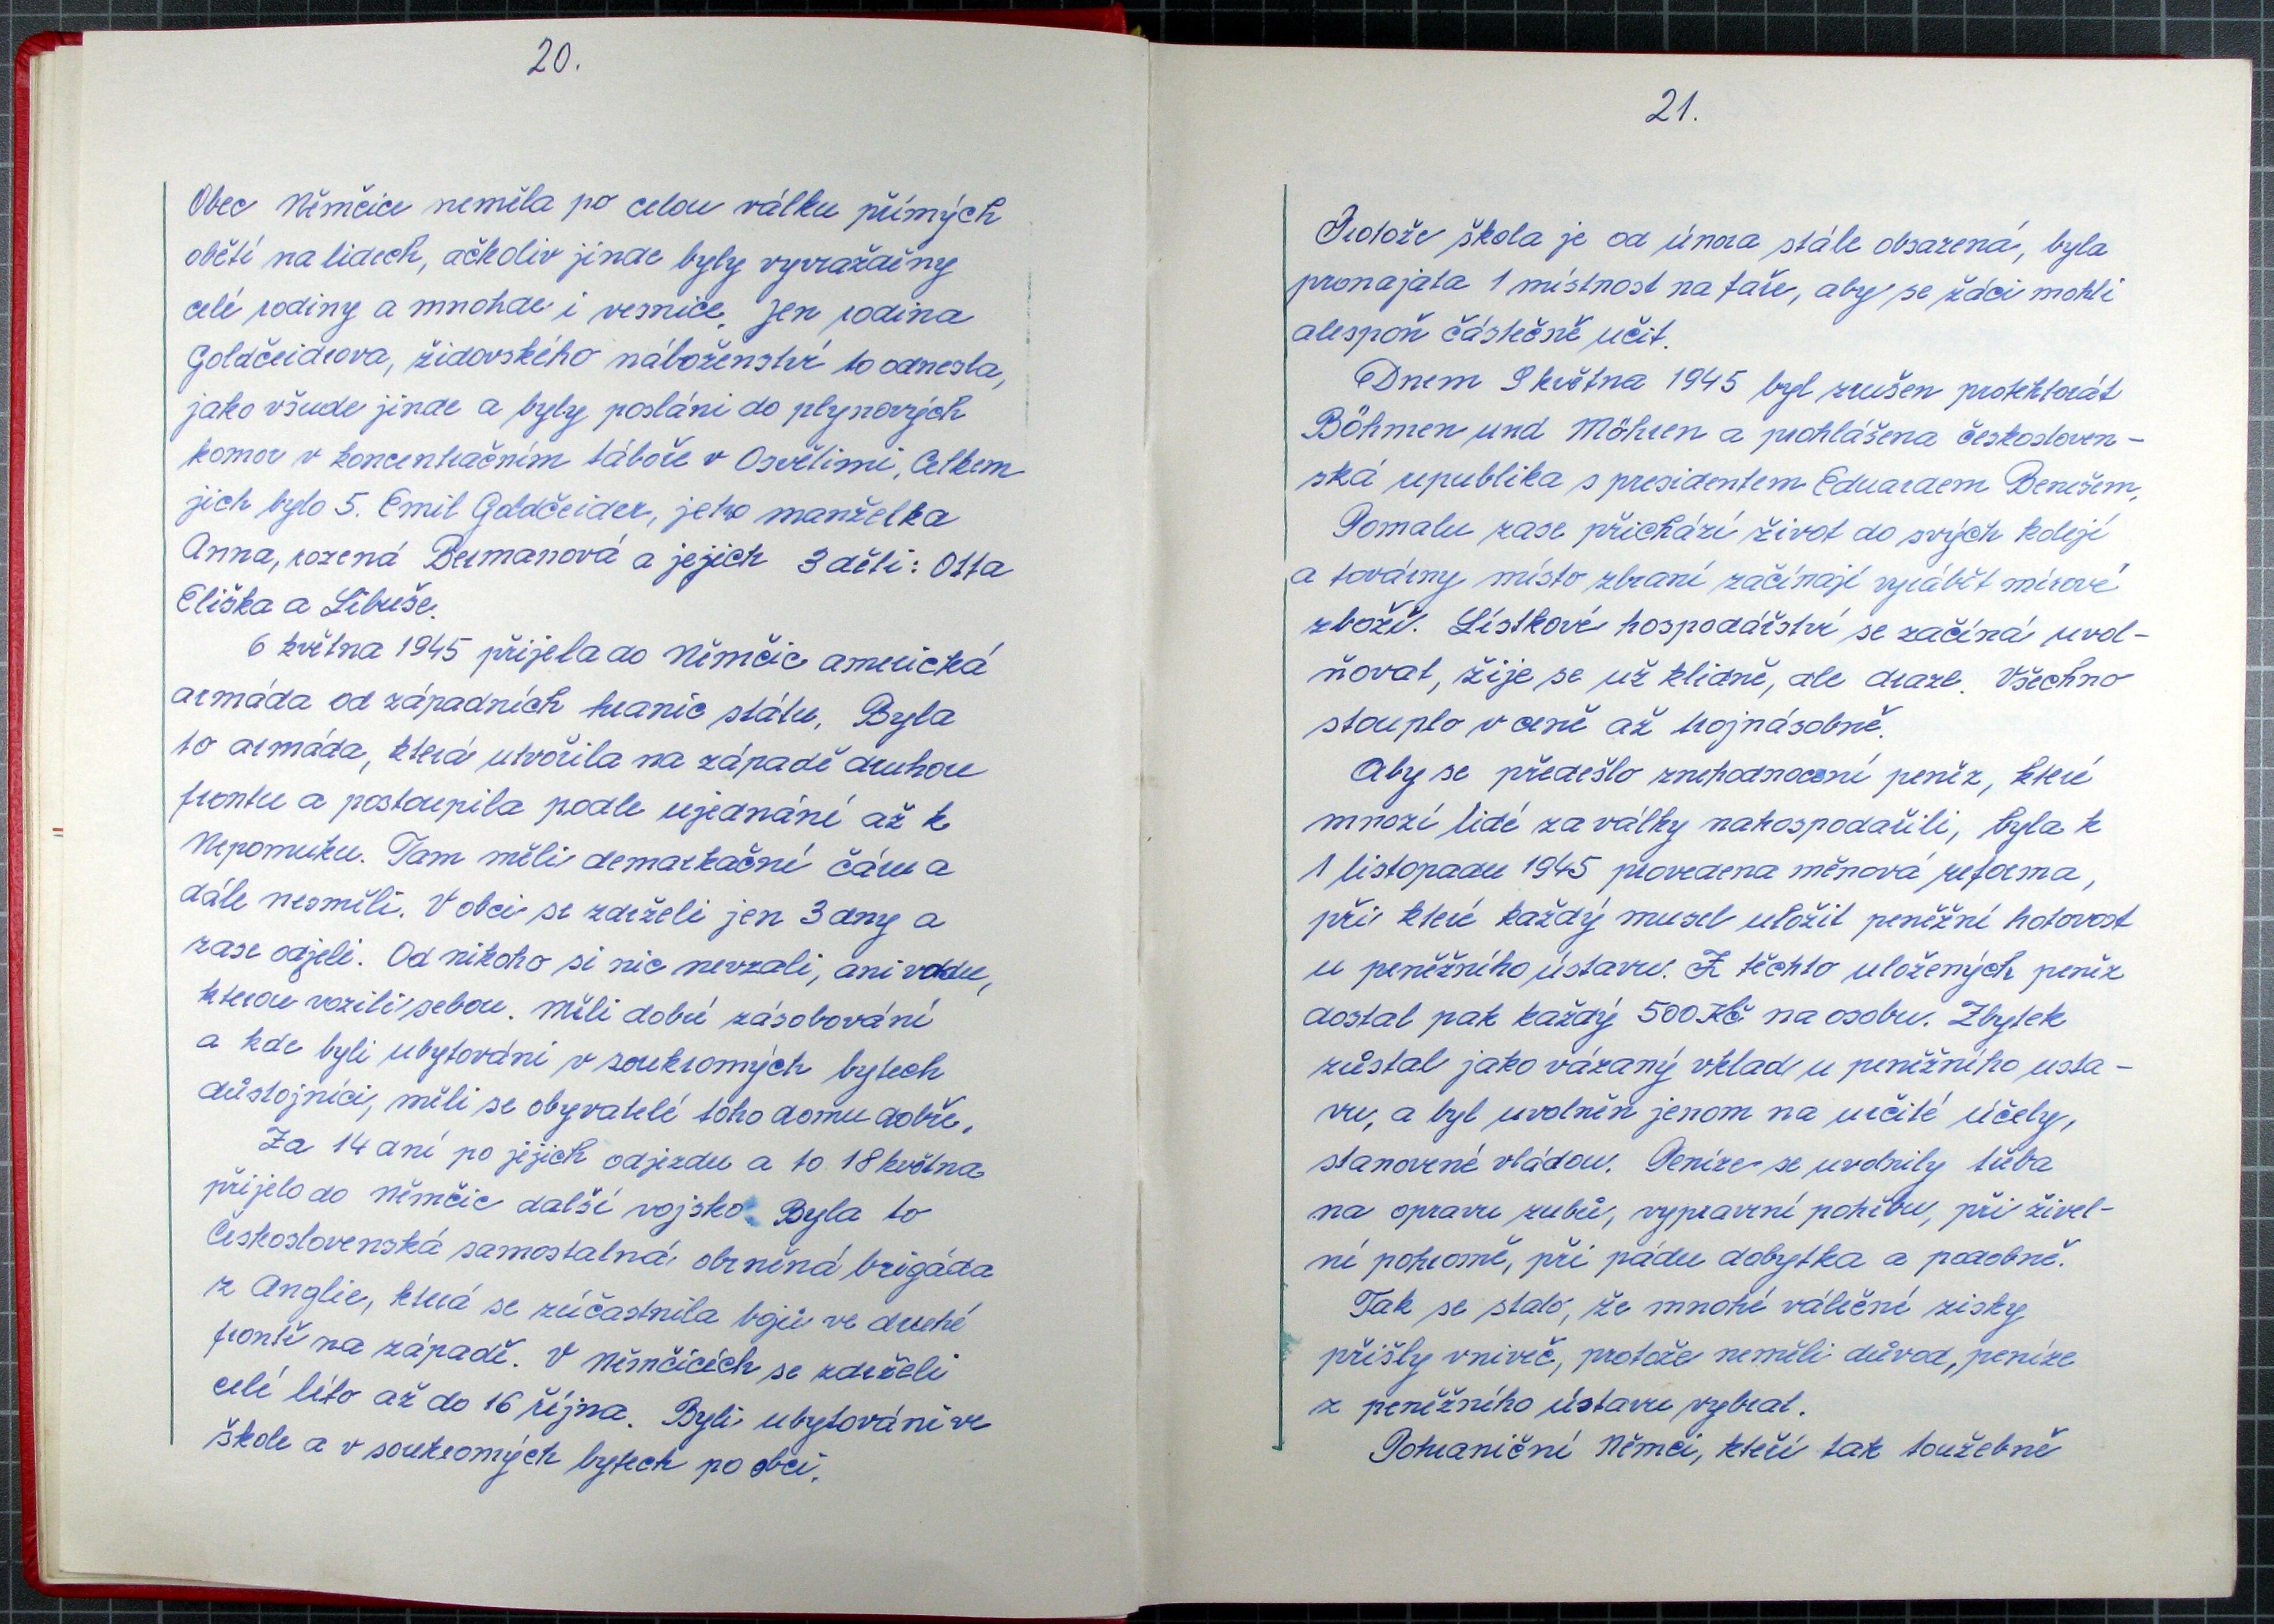 20.
Obec Němčice neměla po celou válku přímých
obětí na lidech, ačkoliv jinde byly vyvražděny
celé rodiny a mnohde i vesnice. Jen rodina
Goldčeidrova, židovského náboženství to odnesla,
jako všude jinde a byly posláni do plynových
komor v koncentračním táboře v Osvětimi. Celkem
jich bylo 5. Emil Goldčeider, jeho manželka
Anna, rozená Bermanová a jejich 3 děti: Otta
Eliška a Libuše.
6 května 1945 přijela do Němčic americká
armáda od západních hranic státu. Byla
to armáda, která utvořila na západě druhou
frontu a postoupila podle ujednání až k
Nepomuku. Tam měli demarkační čáru a
dále nesměli. V obci se zdrželi jen 3 dny a
zase odjeli. Od nikoho si nic nevzali, ani vodu,
kterou vozili sebou. Měli dobré zásobování
a kde byli ubytováni v soukromých bytech
důstojníci, měli se obyvatelé toho domu dobře.
Za 14 dní po jejich odjezdu a to 18 května
přijelo do Němčic další vojsko. Byla to
Československá samostatná obrněná brigáda
z Anglie, která se zúčastnila bojů ve druhé
frontě na západě. V Němčicích se zdrželi
celé léto až do 16 října. Byli ubytováni ve
škole a v soukromých bytech po obci.
21.
Protože škola je od února stále obsazená, byla
pronajata 1 místnost na faře, aby se žáci mohli
alespoň částečně učit.
Dnem 9 května 1945 byl zrušen protektorát
Böhmen und Möhren a prohlášena českosloven-
ská republika s presidentem Eduardem Benešem.
Pomalu zase přichází život do svých kolejí
a továrny místo zbraní začínají vyrábět mírové
zboží. Lístkové hospodářství se začíná uvol-
ňovat, žije se už klidně, ale draze. Všechno
stouplo v ceně až trojnásobně.
Aby se předešlo znehodnocení peněz, které
mnozí lidé za války nahospodařili, byla k
1 listopadu 1945 provedena měnová reforma,
při které každý musel uložit peněžní hotovost
u peněžního ústavu. Z těchto uložených peněz
dostal pak každý 500 Kč na osobu. Zbytek
zůstal jako vázaný vklad u peněžního usta-
vu, a byl uvolněn jenom na určité účely,
stanovené vládou. Peníze se uvolnily třeba
na opravu zubů, vypravení pohřbu, při živel-
ní pohromě, při pádu dobytka a podobně.
Tak se stalo, že mnohé válečné zisky
přišly vniveč, protože neměli důvod, peníze
z peněžního ústavu vybrat.
Pohraniční Němci, kteří tak toužebně